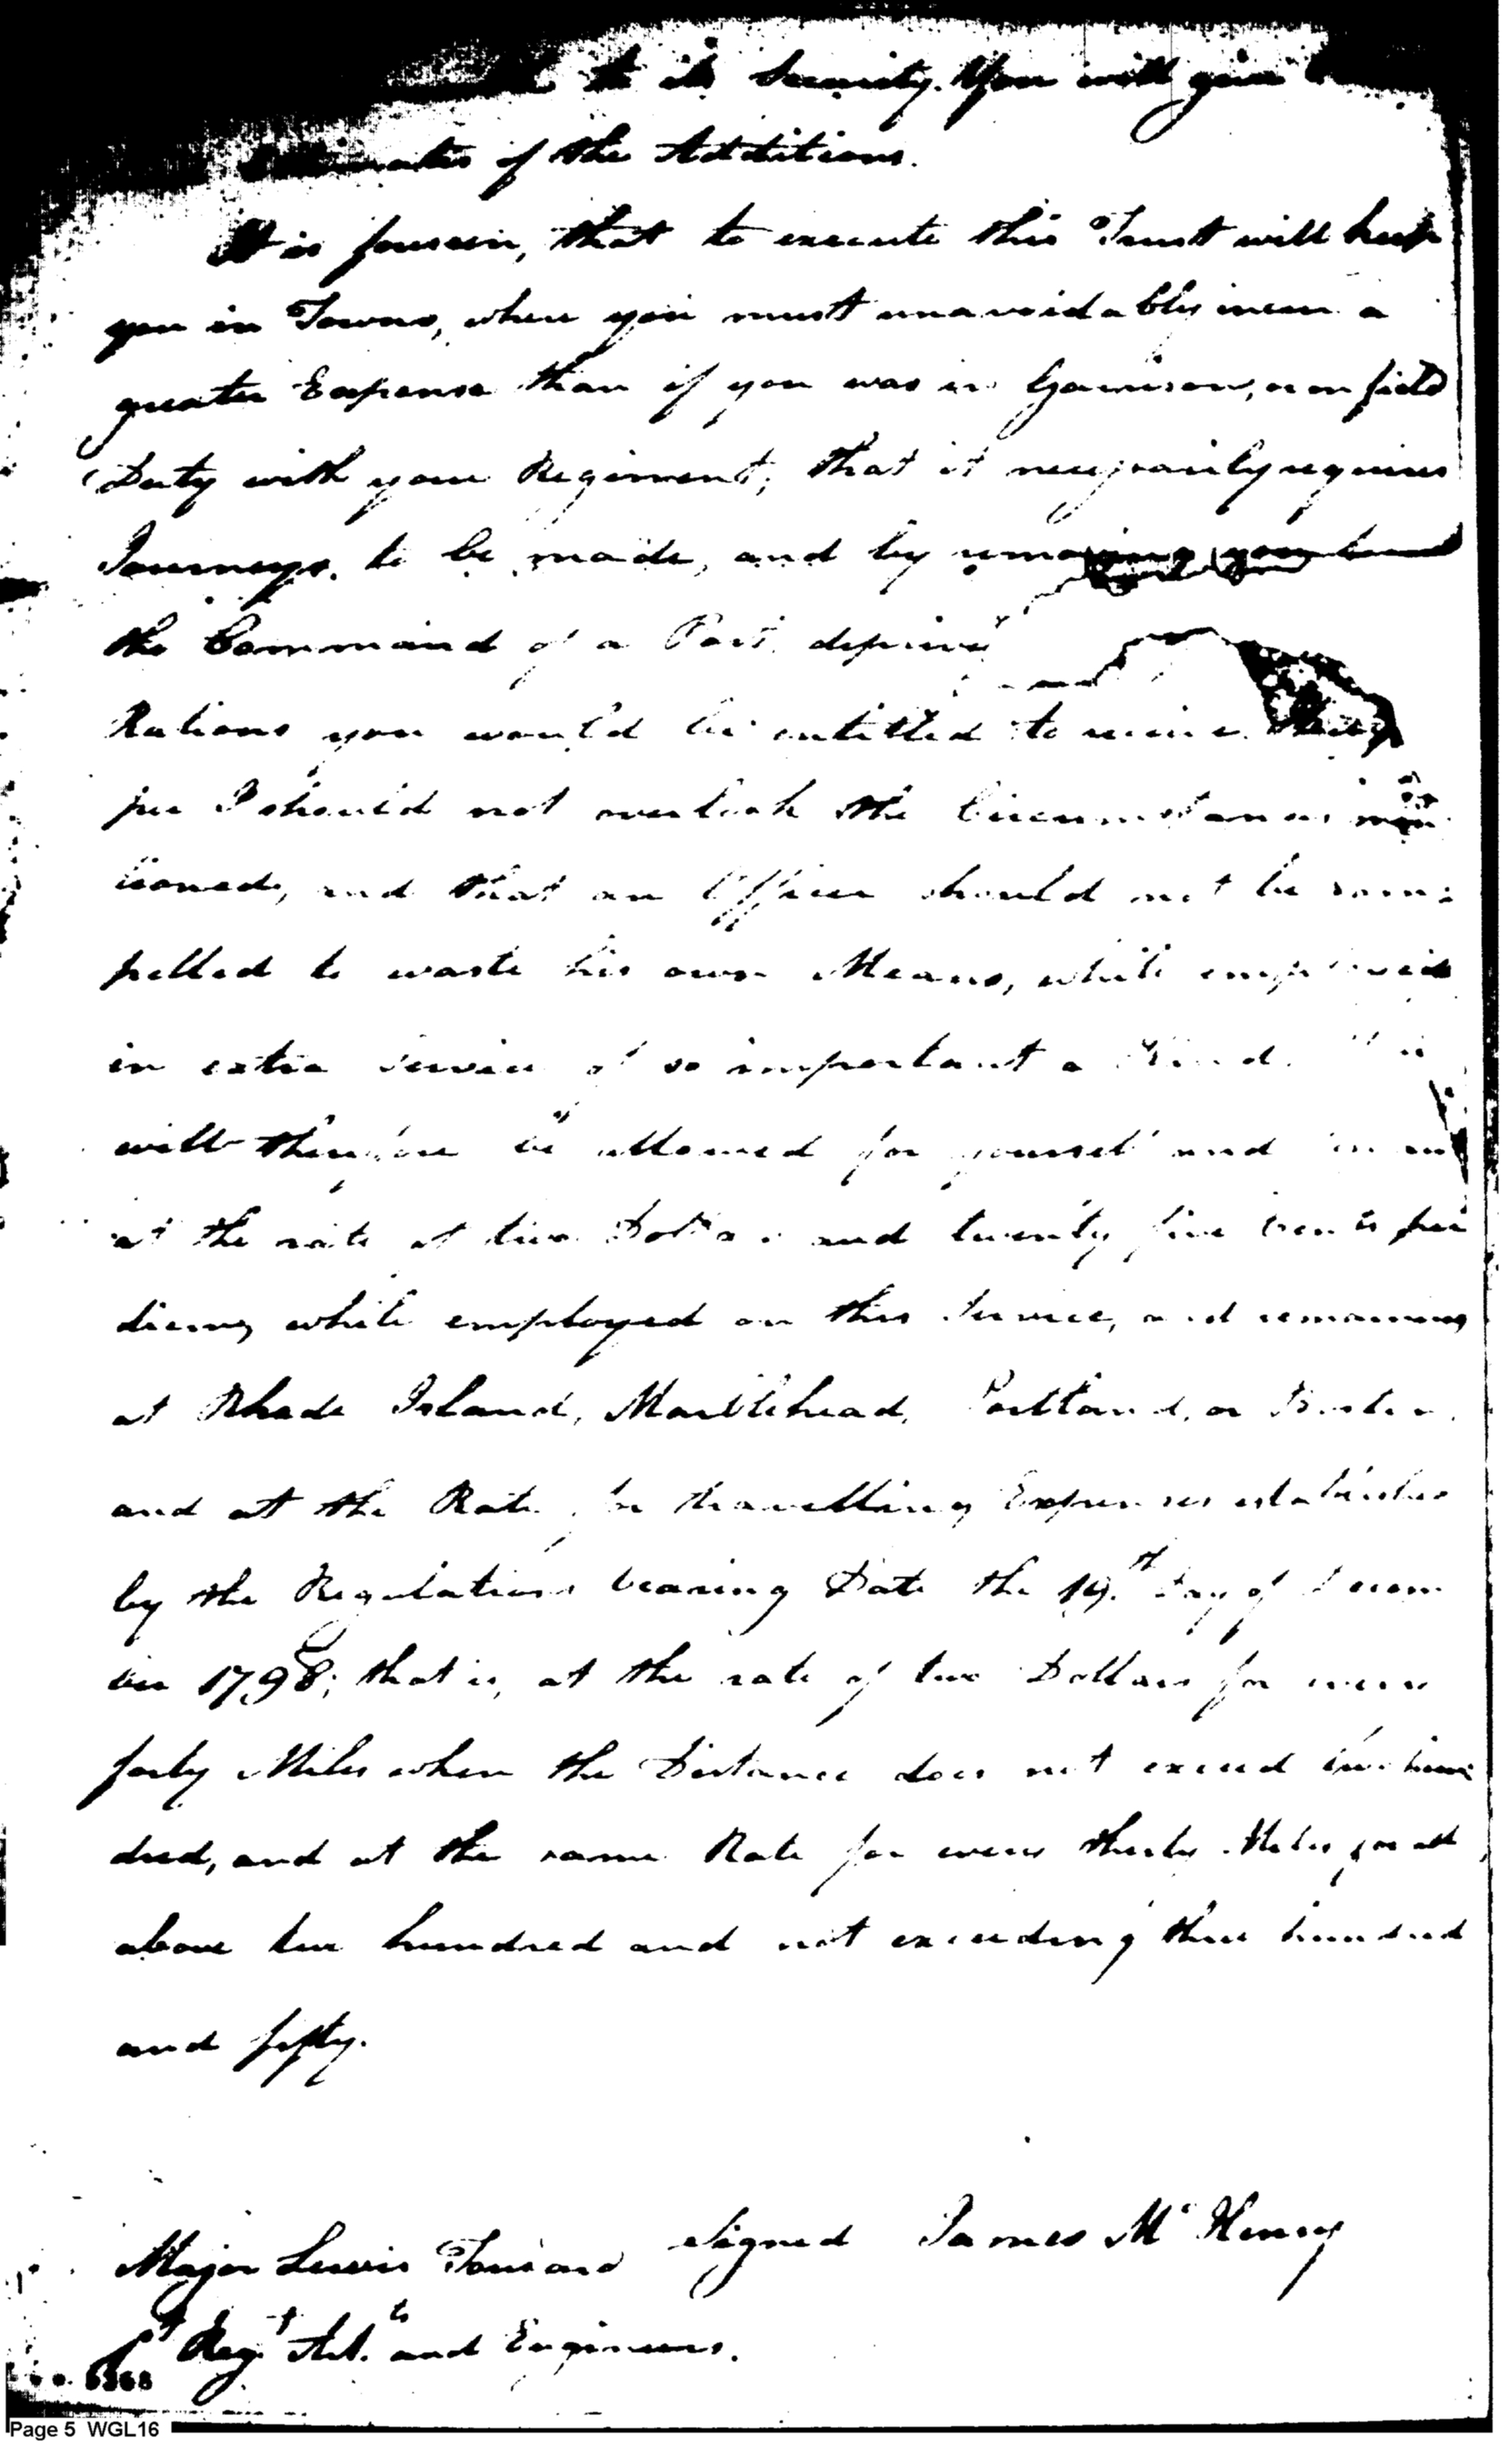 to its Security. You will give
of the Additions.
It is foreseen, that to execute this Trust will keep
you in Towns, where you must unavoidably incur a
greater Expense than if you was in Garrison, or on field
Duty with your Regiment; that it necessarily requires
Journeys to be made, and by removing you from
the Command of a Post, deprives
Rations you would be entitled to receive.
per I should not overlook the Circumstances men-
tioned, and that an Officer should not be com=
pelled to waste his own Means, while employed
in extra service of so important a Kind.
will therefore be allowed for yourself and
at the rate of two Dollars and twenty five Cents per
diem, while employed on this Service, and remaining
at Rhode Island, Marblehead, Portland, or Boston,
and at the Rate for travelling Expenses established
by the Regulations bearing Date the 19.th Day of Decem
ber 1798; that is, at the rate of two Dollars for every
forty Miles when the Distance does not exceed two hun
dred, and at the same Rate for every thirty Miles for all
above two hundred and not exceeding three hundred
and fifty.
Signed James McHenry
Major Lewis Tousard
Regt Art. and Engineers.
6368
Page 5 WGL16